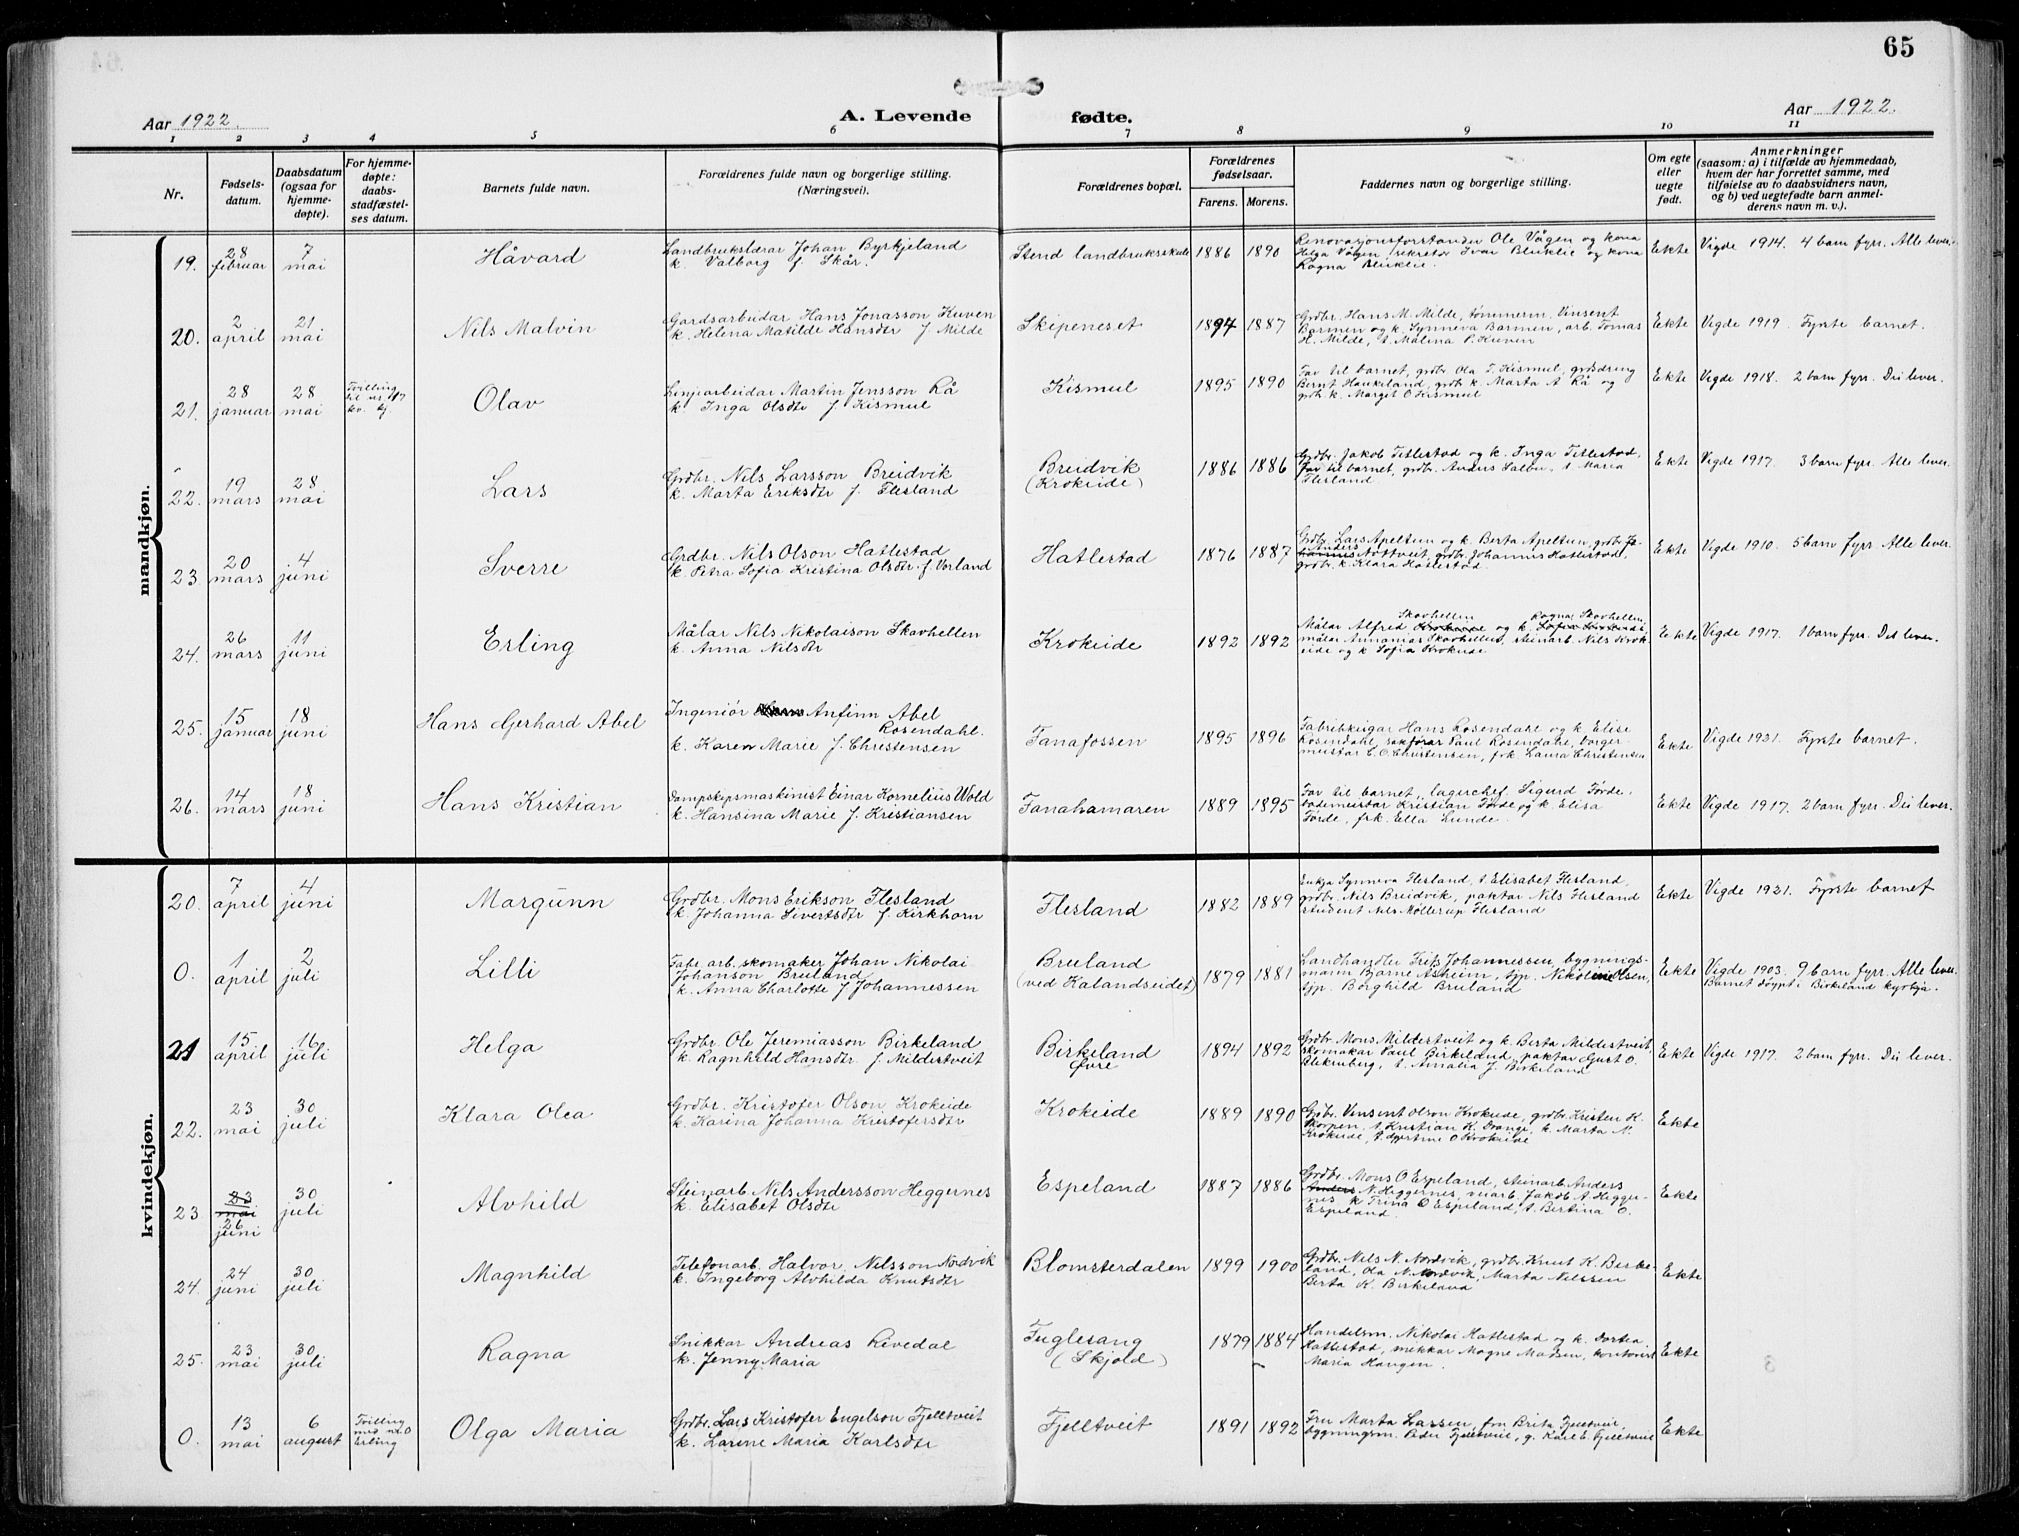 65
Aar 1922.
A. Levende fødte.
Aar 1922.
1 2 3 4 5 6 7 8 9 10 11
Nr.
Fødsels-
datum.
Daabsdatum
(ogsaa for
hjemme-
døpte).
For hjemme-
døpte:
daabs-
stadfæstel-
ses datum.
Barnets fulde navn.
Forældrenes fulde navn og borgerlige stilling.
(Næringsvei).
Forældrenes bopæl.
Forældrenes
fødselsaar.
Farens. Morens.
Faddernes navn og borgerlige stilling.
Om egte
eller
uegte
født.
Anmerkninger
(saasom: a) i tilfælde av hjemmedaab,
hvem der har forrettet samme, med
tilføielse av to daabsvidners navn,
og b) ved uegtefødte barn anmel-
derens navn m. v.).
mandkjøn.
19. 28 februar 7 mai Håvard
Landbrukslærar Johan Byrkjeland
k. Valborg f. Skår.
Stend landbruksskule 1886 1890
Renovasjonsforstander Ole Vågen og kona
Helga Vågen, sekretær Ivar Bleiklie og kona
Ragna Bleiklie.
Ekte Vigde 1914. 4 barn fyrr. Alle lever.
20. 2 april 21 mai Nils Malvin
Gardsarbeidar Hans Jonasson Kuven
k. Helena Matilde Hansdtr f. Milde
Skipeneset 1894 1887
Grdbr. Hans M. Milde, tømmerm. Vinsent
Barmen og k. Synneva Barmen, arb. Tomas
H. Milde, t. Malina P. Kuven
Ekte Vigde 1919. Fyrste barnet.
21. 28 januar 28 mai
Tvilling
til nr. 17
kv. kj
Olav
Linjarbeidar Martin Jensson Rå
k. Inga Olsdtr f. Kismul
Kismul 1895 1890
Far til barnet, grdbr Ola T. Kismul, grdsdreng
Bernt Haukeland, grdbr k. Marta A Rå og
grdbr. k. Marget O Kismul
Ekte Vigde 1918. 2 barn fyrr. Dei lever.
22. 19 mars 28 mai Lars
Grdbr. Nils Larsson Breidvik
k. Marta Eriksdtr f. Flesland
Breidvik
(Krokeide)
1886 1886
Grdbr. Jakob Titlestad og k. Inga Titlestad,
Far til barnet, grdbr. Anders Salbu, t Maria
Flesland
Ekte Vigde 1917. 3 barn fyrr. Alle lever.
23 20 mars 4 juni Sverre
Grdbr. Nils Olson Hatlestad
k. Petra Sofia Kristina Olsdtr. f Vorland
Hatlestad 1876 1887
Grdbr. Lars Apeltun og k. Berta Apeltun, grdbr. Jo-
hannis Anders Totteveit, grdbr. Johannes Hatlestad,
grdbr. k. Klara Hatlestad.
Ekte Vigde 1910. 5 barn fyrr. Alle lever.
24. 26 mars 11 juni Erling
Målar Nils Nikolaison Skavhellen
k. Anna Nilsdtr
Krokeide 1892 1892
Skavhellen Ragna Skavhellen,
Målar Alfred Krokeide og k. Sofia Krokeide
målar Annanias Skavhellen, steinarb. Nils Krok-
eide og k Sofia Krokeide
Ekte Vigde 1917. 1 barn fyrr. Det lever.
25. 15 januar 18 juni Hans Gerhard Abel
Ingeniør Hans Anfinn Abel
Rosendahl.
k. Karen Marie f. Christensen
Fanafossen 1895 1896
Fabrikkeigar Hans Rosendahl og k Elise
Rosendahl, sakførar Paul Rosendahl, borger
meistar C. O. Christensen, frk. Laura Christensen
Ekte Vigde 1921. Fyrste barnet.
26. 14 mars 18 juni Hans Kristian
Dampskipsmaskinist Einar Kornelius Wold
k. Hansina Marie f. Kristiansen
Fanahamaren 1889 1895
Far til barnet, lagerchef. Sigurd Førde,
bademeistar Kristian Førde og k. Elisa
Førde, frk. Ella Lunde.
Ekte Vigde 1917. 2 barn fyrr. Dei lever.
kvindekjøn.
20. 7 april 4 juni Margunn
Grdbr. Mons Erikson Flesland
k. Johanna Sivertsdtr f. Kirkhorn
Flesland 1882 1889
Enkja Synneva Flesland, t. Elisabet Flesland,
grdbr. Nils Breidvik, paktar Nils Flesland
student Nils Møllerup Flesland
Ekte Vigde 1921. Fyrste barnet
0. 1 april 2 juli Lilli
Fabr arb. skomaker Johan Nikolai
Johanson Bruland
k. Anna Charlotte f. Johannessen
Bruland
(ved Kalandseidet)
1879 1881
Landhandler Frits Johannessen, bygnings-
mann Bjarne Asheim, tjp. Nikoline Olsen,
tjp. Borghild Bruland
Ekte Vigde 1903. 9 barn fyrr. Alle lever.
Barnet døypt i Birkeland kyrkja.
21 15 april 16 juli Helga
Grdbr. Ole Jeremiasson Birkeland
k. Ragnhild Hansdtr. f. Mildestveit
Birkeland
Øvre
1894 1892
Grdbr. Mons Mildestveit og k. Berta Mildestveit,
skomakar Paul Birkeland, paktar Gust O.
Blekenberg, t. Amalia J. Birkeland
Ekte Vigde 1917. 2 barn fyrr. Dei lever.
22. 23 mai 30 juli Klara Olea
Grdbr. Kristofer Olson Krokeide
k. Karina Johanna Kristofersdtr
Krokeide 1889 1890
Grdbr. Vinsent Olson Krokeide, grdbr. Kristen K.
Skorpen, t. Kristian K. Drange, k. Marta N.
Krokeide, t. Gjertine O Krokeide
Ekte
23 23 mai 26 juni 30 juli Alvhild
Steinarb Nils Andersson Heggernes
k. Elisabet Olsdtr
Espeland 1887 1886
Grdbr. Mons O Espeland, steinarb. Anders
Anders N. Heggernes, veiarb. Jakob A. Hegger-
nes k Trina O Espeland, t. Bertina O.
Espeland.
Ekte
24. 24 juni 30 juli Magnhild
Telefonarb. Halvor Nilsson Nordvik
k. Ingeborg Alvhilda Knutsdtr
Blomsterdalen 1899 1900
Grdbr. Nils N. Nordvik, grdbr. Knut K. Birke-
land, Ola N. Nordvik, Marta Nilssen
Berta K. Birkeland
Ekte
25. 23 mai 30 juli Ragna
Snikkar Andreas Rivedal
k. Jenny Maria
Fuglesang
(Skjold)
1879 1884
Handelsm. Nikolai Hatlestad og k. Dortea
Hatlestad, snikkar Magne Madsen, kontorist
Maria Haugen.
Ekte
0. 13 mai 6 august
Tvilling
med nr. 0
Erling
Olga Maria
Grdbr. Lars Kristofer Engelson Fjelltveit
k. Larine Maria Karlsdtr
Fjelltveit 1891 1892
Fru Marta Larsen, fru Brita Fjelltveit,
bygningsm. Peder Fjelltveit, g. Karl E. Fjelltveit
Ekte